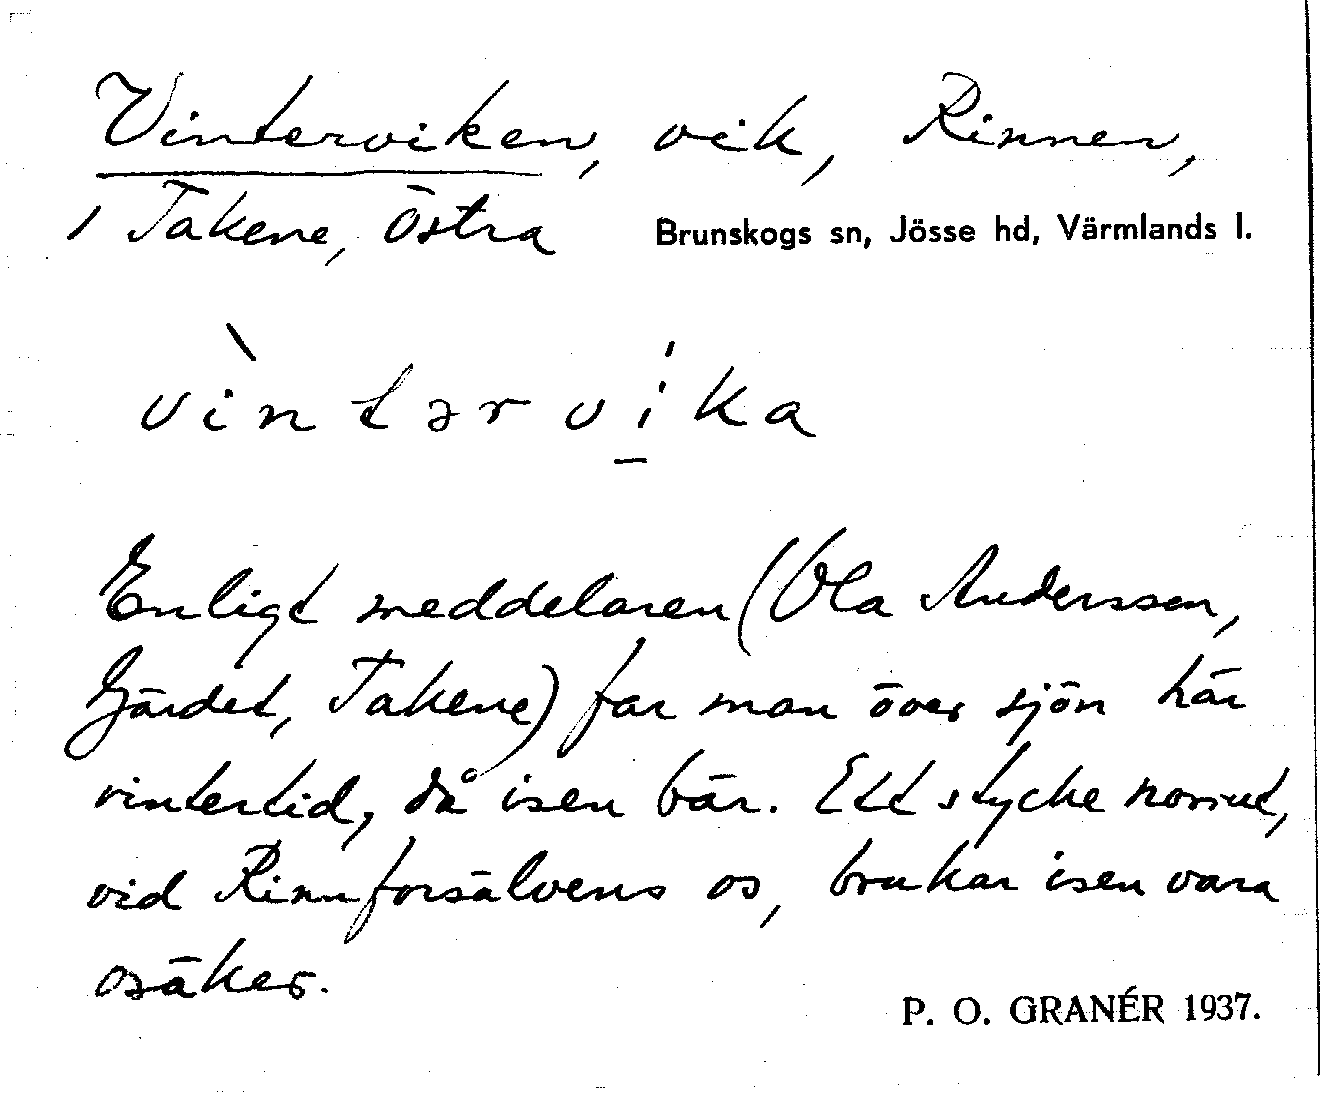 Vinterviken, vik, Rinnen,
/ Takene, Östra Brunskogs sn, Jösse hd, Värmlands l.
vìntərvi̱ka
Enligt meddelaren (Ola Andersson,
Gärdet, Takene) far man över sjön här
vintertid, då isen bär. Ett stycke norrut,
vid Rinnforsälvens os, brukar isen vara
osäker.
P. O. GRANÉR 1937.